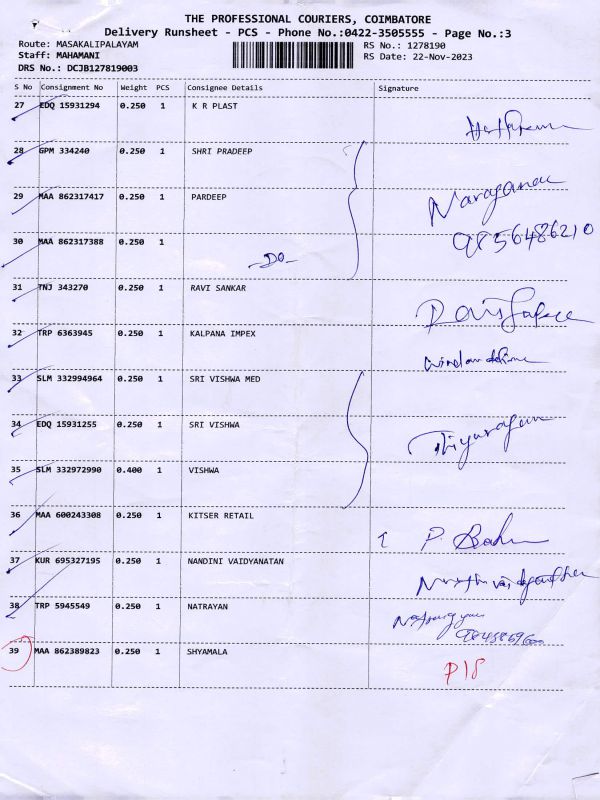 THE PROFESSIONAL COURIERS, COIMBATORE
Delivery Runsheet - PCS - Phone No.:0422-3505555 - Page No.:3
Route: MASAKALIPALAYAM RS No.: 1278190
Staff: MAHAMANI RS Date: 22-Nov-2023
DRS No.: DCJB127819003
S No Consignment No Weight PCS Consignee Details Signature
27 EDQ 15931294 0.250 1 K R PLAST
28 GPM 334240 0.250 1 SHRI PRADEEP
29 MAA 862317417 0.250 1 PARDEEP
9856486210
30 MAA 862317388 0.250 1
-DO-
31 TNJ 343270 0.250 1 RAVI SANKAR
32 TRP 6363945 0.250 1 KALPANA IMPEX
33 SLM 332994964 0.250 1 SRI VISHWA MED
34 EDQ 15931255 0.250 1 SRI VISHWA
35 SLM 332972990 0.400 1 VISHWA
36 MAA 600243308 0.250 1 KITSER RETAIL
37 KUR 695327195 0.250 1 NANDINI VAIDYANATAN
38 TRP 5945549 0.250 1 NATRAYAN
39 MAA 862389823 0.250 1 SHYAMALA